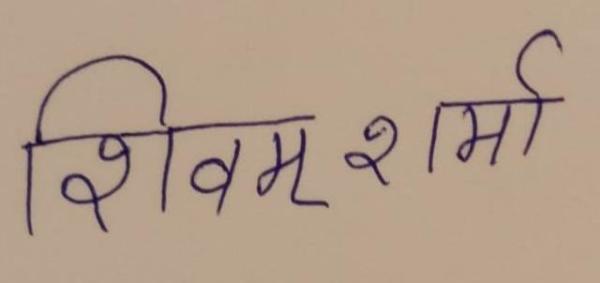 शिवम् शर्मा